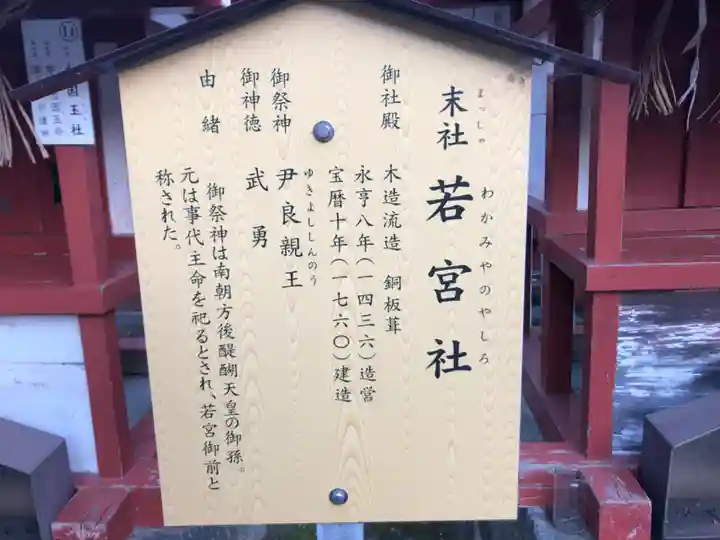 末社 若宮社
まっしゃ わかみやのやしろ
御社殿 木造流造 銅板葺
永亨八年(一四三六)造営
宝暦十年(一七六〇)建造
御祭神 尹良親王
ゆきよししんのう
御神徳 武勇
由緒
御祭神は南朝方後醍醐天皇の御孫。
元は事代主命を祀るとされ、若宮御前と
称された。
国玉社